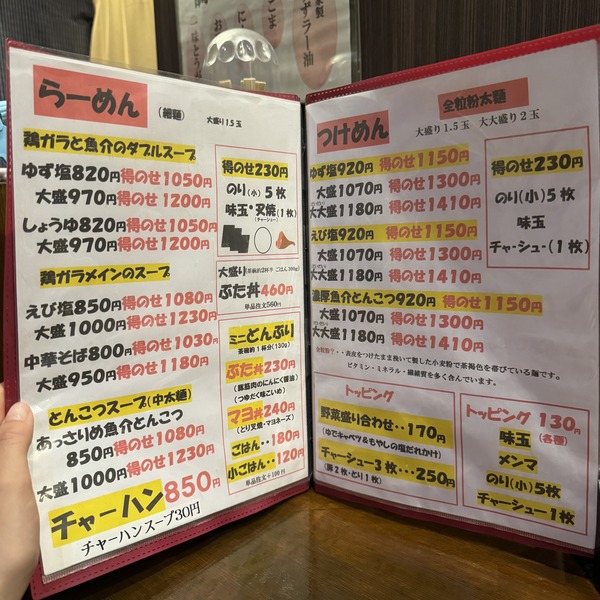 らーめん
(細麺)
大盛り1.5玉
鶏ガラと魚介のダブルスープ
ゆず塩820円 得のせ1050円
大盛970円 得のせ1200円
しょうゆ820円 得のせ1050円
大盛970円 得のせ1200円
鶏ガラメインのスープ
えび塩850円 得のせ1080円
大盛1000円 得のせ1230円
中華そば800円 得のせ1030円
大盛950円 得のせ1180円
とんこつスープ(中太麺)
あっさりめ魚介とんこつ
850円 得のせ1080円
大盛1000円 得のせ1230円
チャーハン850円
チャーハンスープ30円
得のせ230円
のり(小)5枚
味玉・叉焼(1枚)
(チャーシュー)
大盛り
ぶた丼460円
単品注文560円
ミニどんぶり
茶碗約1杯分(130g)
ぶた丼230円
(豚筋肉のにんにく醤油)
(つゆだく味こいめ)
マヨ丼240円
(とり叉焼・マヨネーズ)
ごはん‥180円
小ごはん‥120円
単品注文+100円
つけめん
全粒粉太麺
大盛り1.5玉 大大盛り2玉
ゆず塩920円 得のせ1150円
大盛1070円 得のせ1300円
大大盛1180円 得のせ1410円
えび塩920円 得のせ1150円
大盛1070円 得のせ1300円
大大盛1180円 得のせ1410円
濃厚魚介とんこつ920円 得のせ1150円
大盛1070円 得のせ1300円
大大盛1180円 得のせ1410円
全粒粉?・・表皮をつけたまま挽いて製した小麦粉で茶褐色を帯びている麺です。
ビタミン・ミネラル・繊維質を多く含んでいます。
得のせ230円
のり(小)5枚
味玉
チャーシュー(1枚)
トッピング
野菜盛り合わせ‥170円
(ゆでキャベツ&もやしの塩だれかけ)
チャーシュー3枚‥‥250円
(豚2枚・とり1枚)
トッピング 130円
(各種)
味玉
メンマ
のり(小)5枚
チャーシュー1枚